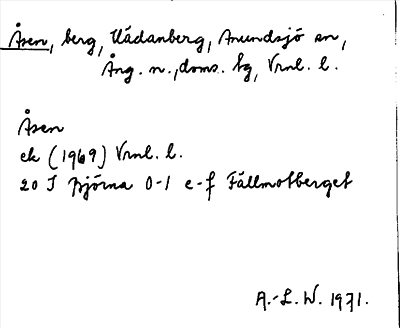 Åsen, berg, Uådanberg, Anundsjö sn,
Ång. n., doms. hg, Vrnl. l.
Åsen
ek (1969) Vrnl. l.
20 J Björna 0-1 e-f Fällmotberget
A.-L. W. 1971.